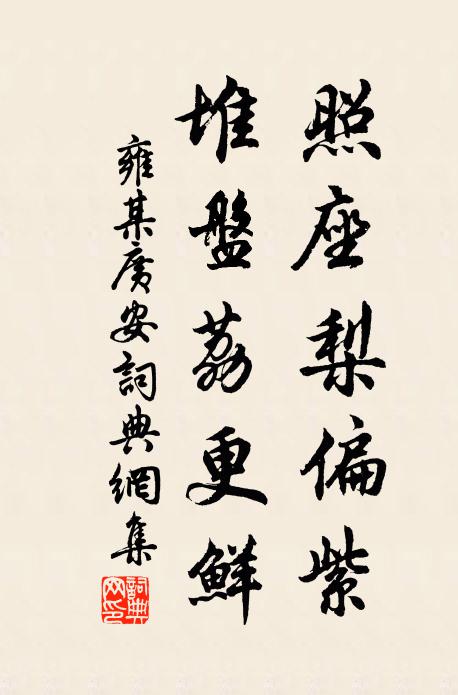 照座梨偏紫
堆盤荔更鮮
雍某廣安詞典網集
詞典网印